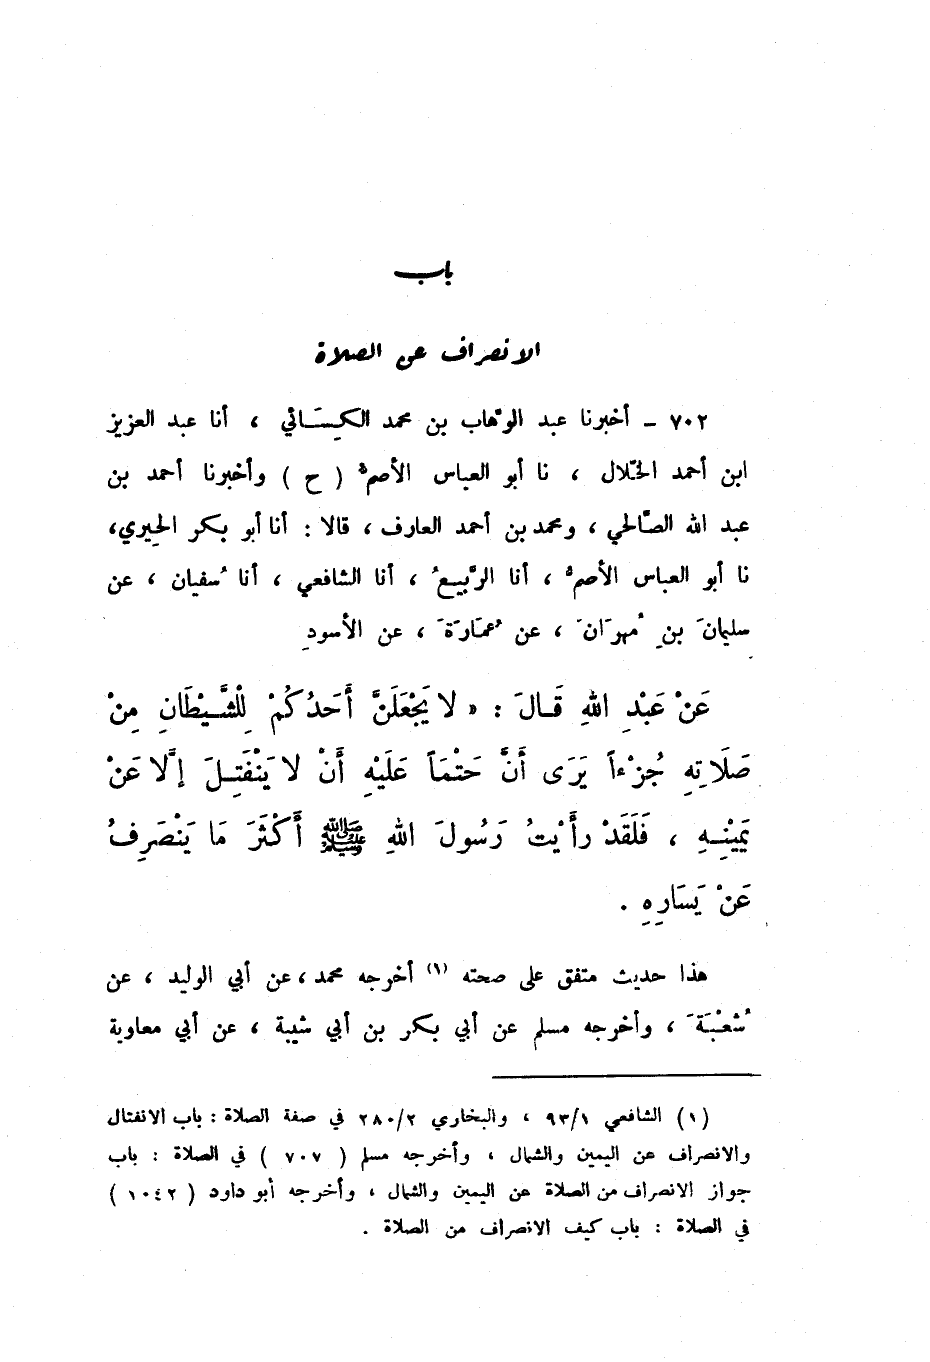 باب
الانصراف عن الصلاة
٧٠٢ - أخبرنا عبد الوهّاب بن محمد الكِسَائي ، أنا عبد العزيز
ابن أحمد الخلّال ، نا أبو العباس الأصمُّ ( ح ) وأخبرنا أحمد بن
عبد الله الصّالحي ، ومحمد بن أحمد العارف ، قالا : أنا أبو بكر الحِيري ،
نا أبو العباس الأصمُّ ، أنا الرَّبيعُ ، أنا الشافعي ، أنا سُفيان ، عن
سليمانَ بنِ مُهرَانَ ، عن عُمَارَةَ ، عن الأسودِ
عَنْ عَبْدِ اللهِ قَالَ : « لا يَجْعَلَنَّ أَحَدُكُمْ لِلْشَّيْطَانِ مِنْ
صَلَاتِهِ جُزْءاً يَرَى أَنَّ حَتْمَاً عَلَيْهِ أَنْ لا يَنْفَتِلَ إلَّا عَنْ
يَمِيْنِهِ ، فَلَقَدْ رأَيْتُ رَسُولَ اللهِ ﷺ أَكْثَرَ مَا يَنْصَرِفُ
عَنْ يَسَارِهِ .
هذا حديث متفق على صحته (١) أخرجه محمد ، عن أبي الوليد ، عن
شُعْبَةَ ، وأخرجه مسلم عن أبي بكر بن أبي شيبة ، عن أبي معاوية
(١) الشافعي ٩٣/١ ، والبخاري ٢٨٠/٢ في صفة الصلاة : باب الانفتال
والانصراف عن اليمين والشمال ، وأخرجه مسلم ( ٧٠٧ ) في الصلاة : باب
جواز الانصراف من الصلاة عن اليمين والشمال ، وأخرجه أبو داود ( ١٠٤٢ )
في الصلاة : باب كيف الانصراف من الصلاة .